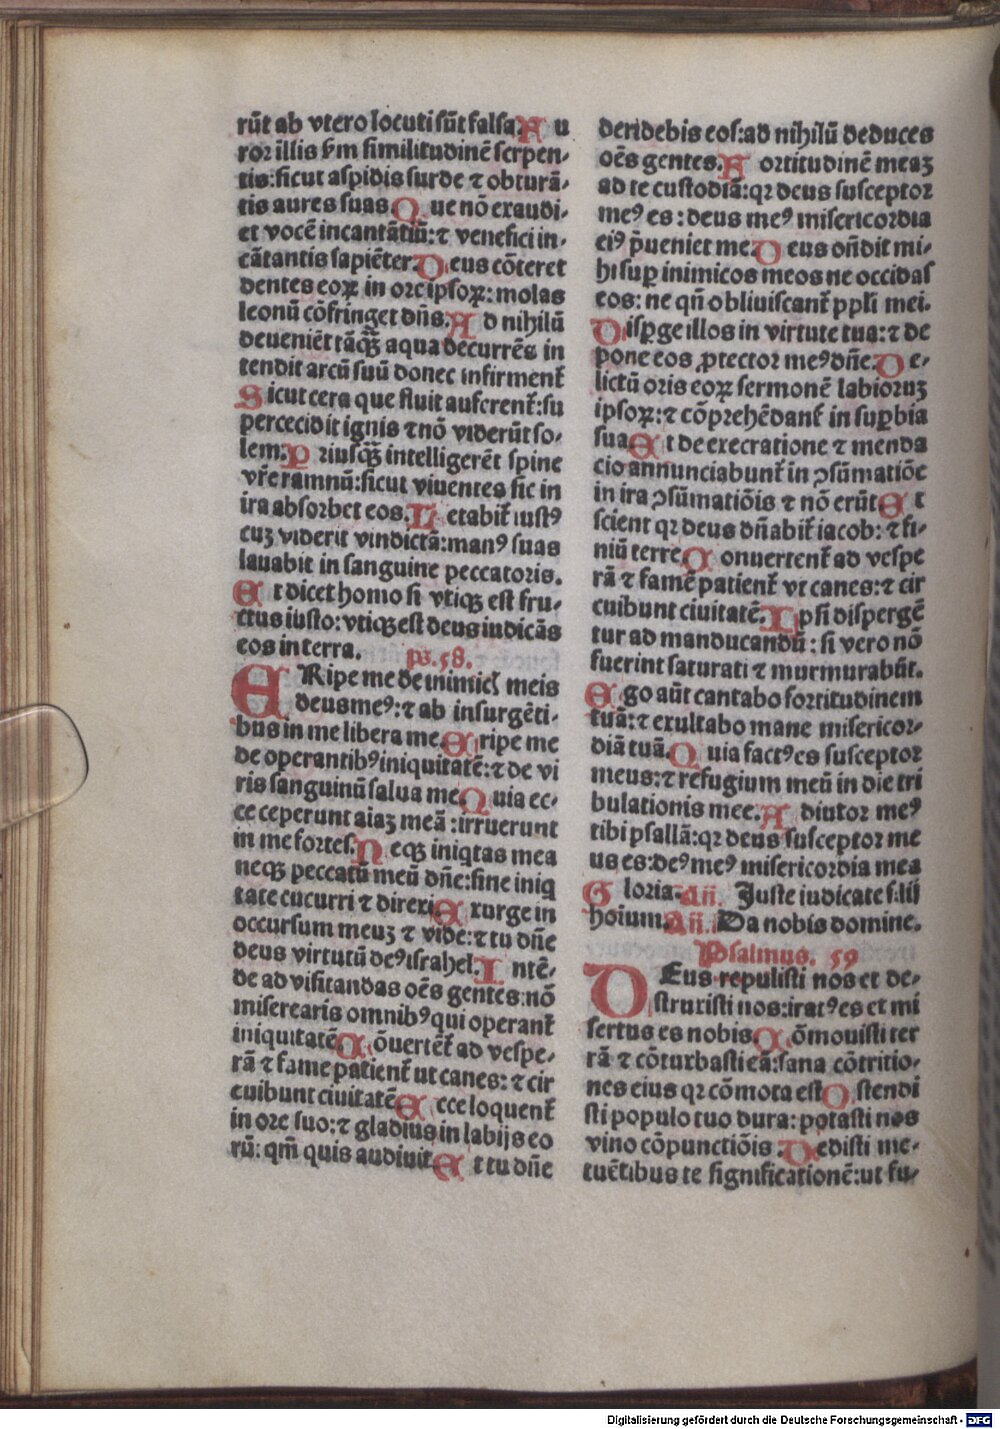 rūt ab vtero locuti sūt falsa. F u
ror illis scḋm similitudinē serpen-
tis: sicut aspidis surde ⁊ obturā-
tis aures suas. Q ue nō exaudi-
et vocē incantātiū: ⁊ venefici in-
cātantis sapiēter. D eus cōteret
dentes eoꝝ in ore ipsoꝝ: molas
leonū cōfringet dñs. A d nihilū
deueniēt tāqꝫ aqua decurrēs in
tendit arcū suū donec infirment᷑
S icut cera que fluit auferent᷑: su
percecidit ignis ⁊ nō viderūt so-
lem. P riusqꝫ intelligerēt spine
vr̄e ramnū: sicut viuentes sic in
ira absorbet eos. L etabit᷑ iustꝰ
cuꝫ viderit vindictā: manꝰ suas
lauabit in sanguine peccatoris.
E t dicet homo si vtiqꝫ est fru-
ctus iusto: vtiqꝫ est deus iudicās
eos in terra. ps. 58.
E Ripe me de inimicꝭ meis
deus meꝰ: ⁊ ab insurgēti-
bus in me libera me. E ripe me
de operantibꝰ iniquitatē: ⁊ de vi
ris sanguinū salua me. Q uia ec-
ce ceperunt aiaꝫ meā: irruerunt
in me fortes. N eqꝫ iniqtas mea
neqꝫ peccatū meū dñe: sine iniq
tate cucurri ⁊ direxi. E xurge in
occursum meuꝫ ⁊ vide: ⁊ tu dñe
deus virtutū deꝰ israhel. I ntē-
de ad visitandas oēs gentes: nō
miserearis omnibꝰ qui operant᷑
iniquitatē. C ōuertēt᷑ ad vespe-
rā ⁊ fame patient᷑ ut canes: ⁊ cir
cuibunt ciuitatē. E cce loquent᷑
in ore suo: ⁊ gladius in labijs eo
rū: qm̄ quis audiuit. E t tu dñe
deridebis eos: ad nihilū deduces
oēs gentes. F ortitudinē meaꝫ
ad te custodiā: qꝛ deus susceptor
meꝰ es: deus meꝰ misericordia
eiꝰ p̄ueniet me. D eus oñdit mi-
hi suꝑ inimicos meos ne occidas
eos: ne qñ obliuiscant᷑ ppl̄i mei.
D isꝑge illos in virtute tua: ⁊ de
pone eos ꝓtector meꝰ dñe. D e-
lictū oris eoꝝ sermonē labioruꝫ
ipsoꝝ: ⁊ cōprehēdant᷑ in suꝑbia
sua. E t de execratione ⁊ menda
cio annunciabunt᷑ in ꝯsūmatiōe
in ira ꝯsūmatiōis ⁊ nō erūt. E t
scient qꝛ deus dñabit᷑ iacob: ⁊ fi-
niū terre. C onuertent᷑ ad vespe
rā ⁊ famē patient᷑ vt canes: ⁊ cir
cuibunt ciuitatē. I psi dispergē
tur ad manducandū: si vero nō
fuerint saturati ⁊ murmurabūt.
E go aūt cantabo fortitudinem
tuā: ⁊ exultabo mane misericor-
diā tuā. Q uia factꝰ es susceptor
meus: ⁊ refugium meū in die tri
bulationis mee. A diutor meꝰ
tibi psallā: qꝛ deus susceptor me
us es: deꝰ meꝰ misericordia mea
G loria. Añ. Iuste iudicate filij
hoium. Añ. Da nobis domine.
Psalmus. 59
D Eus repulisti nos et de-
struxisti nos: iratꝰ es et mi
sertus es nobis. C ōmouisti ter
rā ⁊ cōturbasti eā: sana cōtritio-
nes eius qꝛ cōmota est. O stendi
sti populo tuo dura: potasti nos
vino cōpunctiōis. D edisti me-
tuētibus te significationē: ut fu-
Digitalisierung gefördert durch die Deutsche Forschungsgemeinschaft - DFG